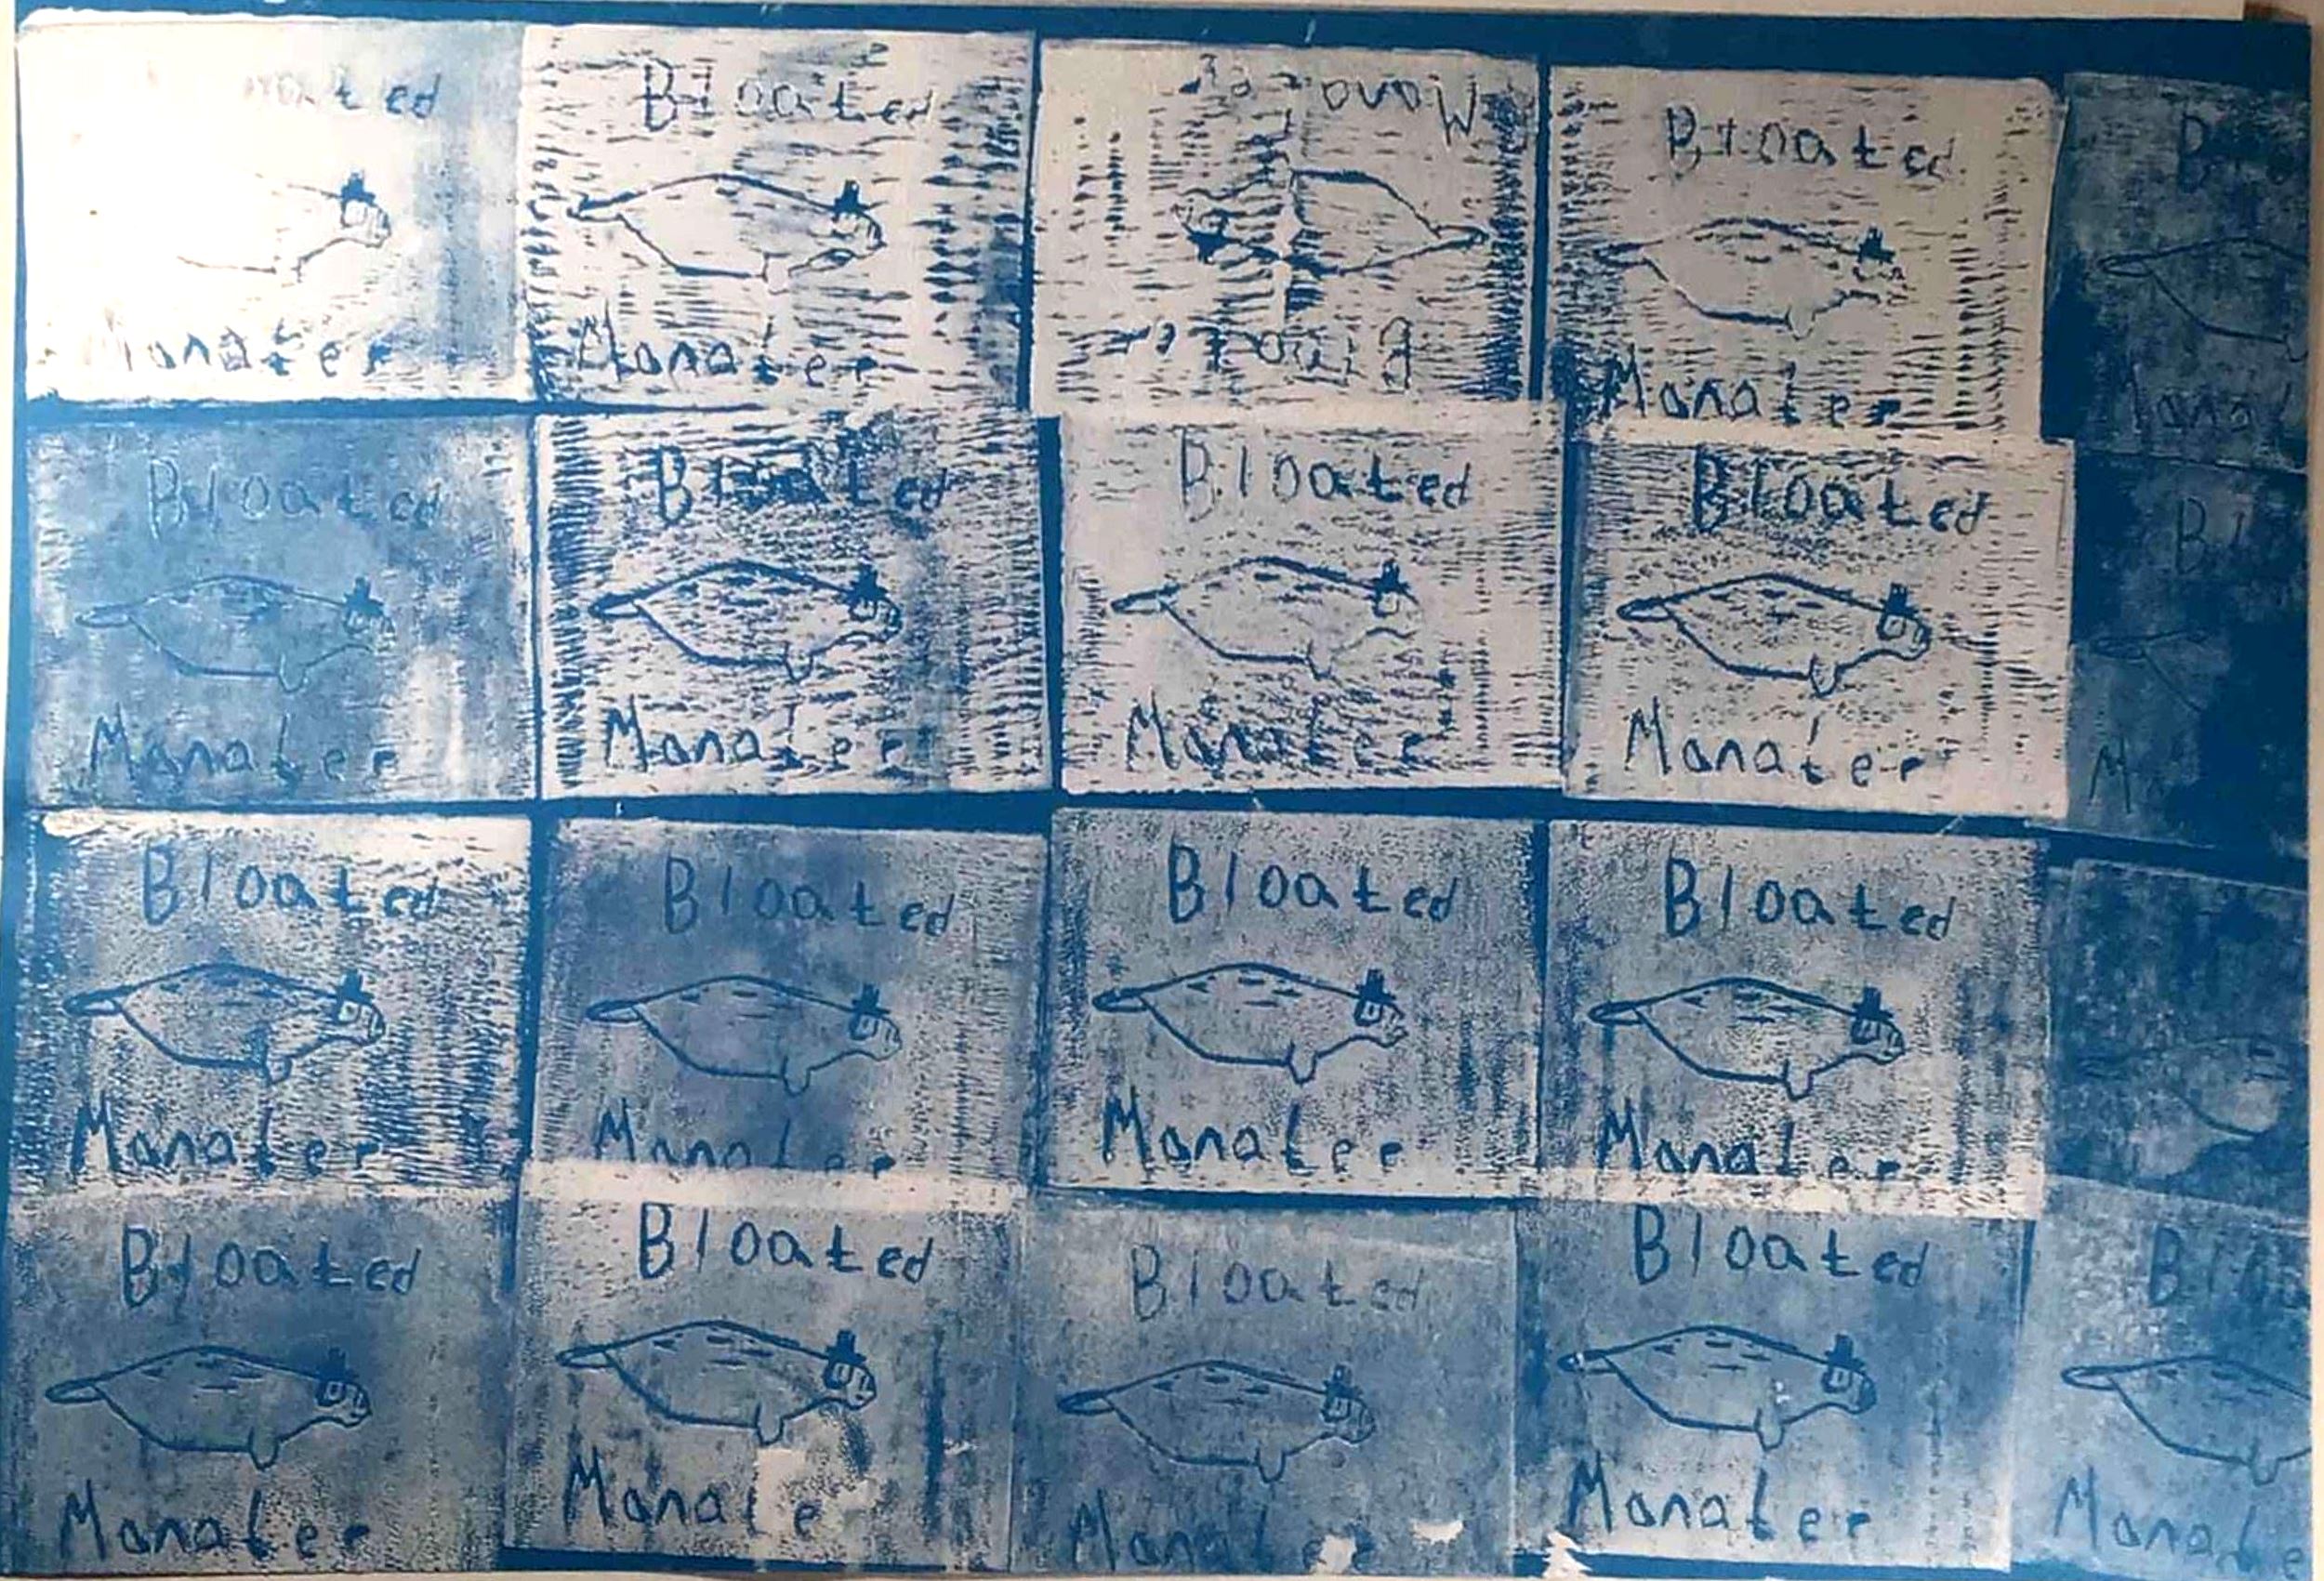 ated
Manatee
Bloated
Manatee
Bloated
Manatee
Bloated
Manatee
Manat
Bloated
Manatee
Bloated
Manatee
Bloated
Manatee
Bloated
Manatee
Bl
M
Bloated
Manatee
Bloated
Manatee
Bloated
Manatee
Bloated
Manatee
Bloated
Manatee
Bloated
Manate
Bloated
Manatee
Bloated
Manatee
Blo
Manate